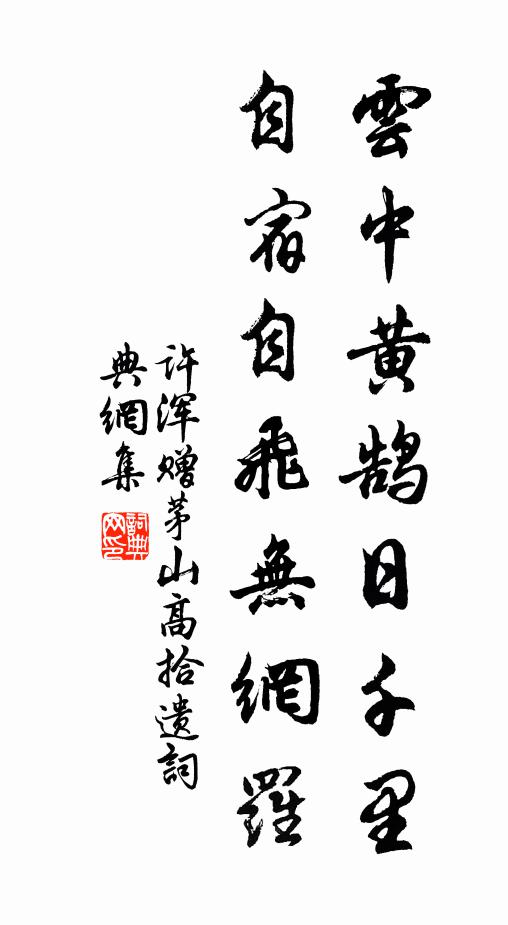 雲中黃鵠日千里
自宿自飛無網羅
许浑赠茅山高拾遺詞
典網集
詞典网印